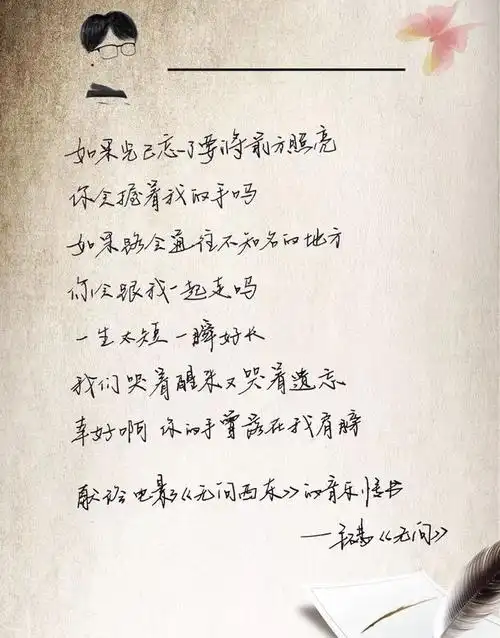 如果光已忘了要将前方照亮
你会握着我的手吗
如果路会通往不知名的地方
你会跟我一起走吗
一生太短 一瞬好长
我们哭着醒来又哭着遗忘
幸好啊 你的手曾落在我肩膀
献给电影《无问西东》的音乐情书
——毛不易《无问》